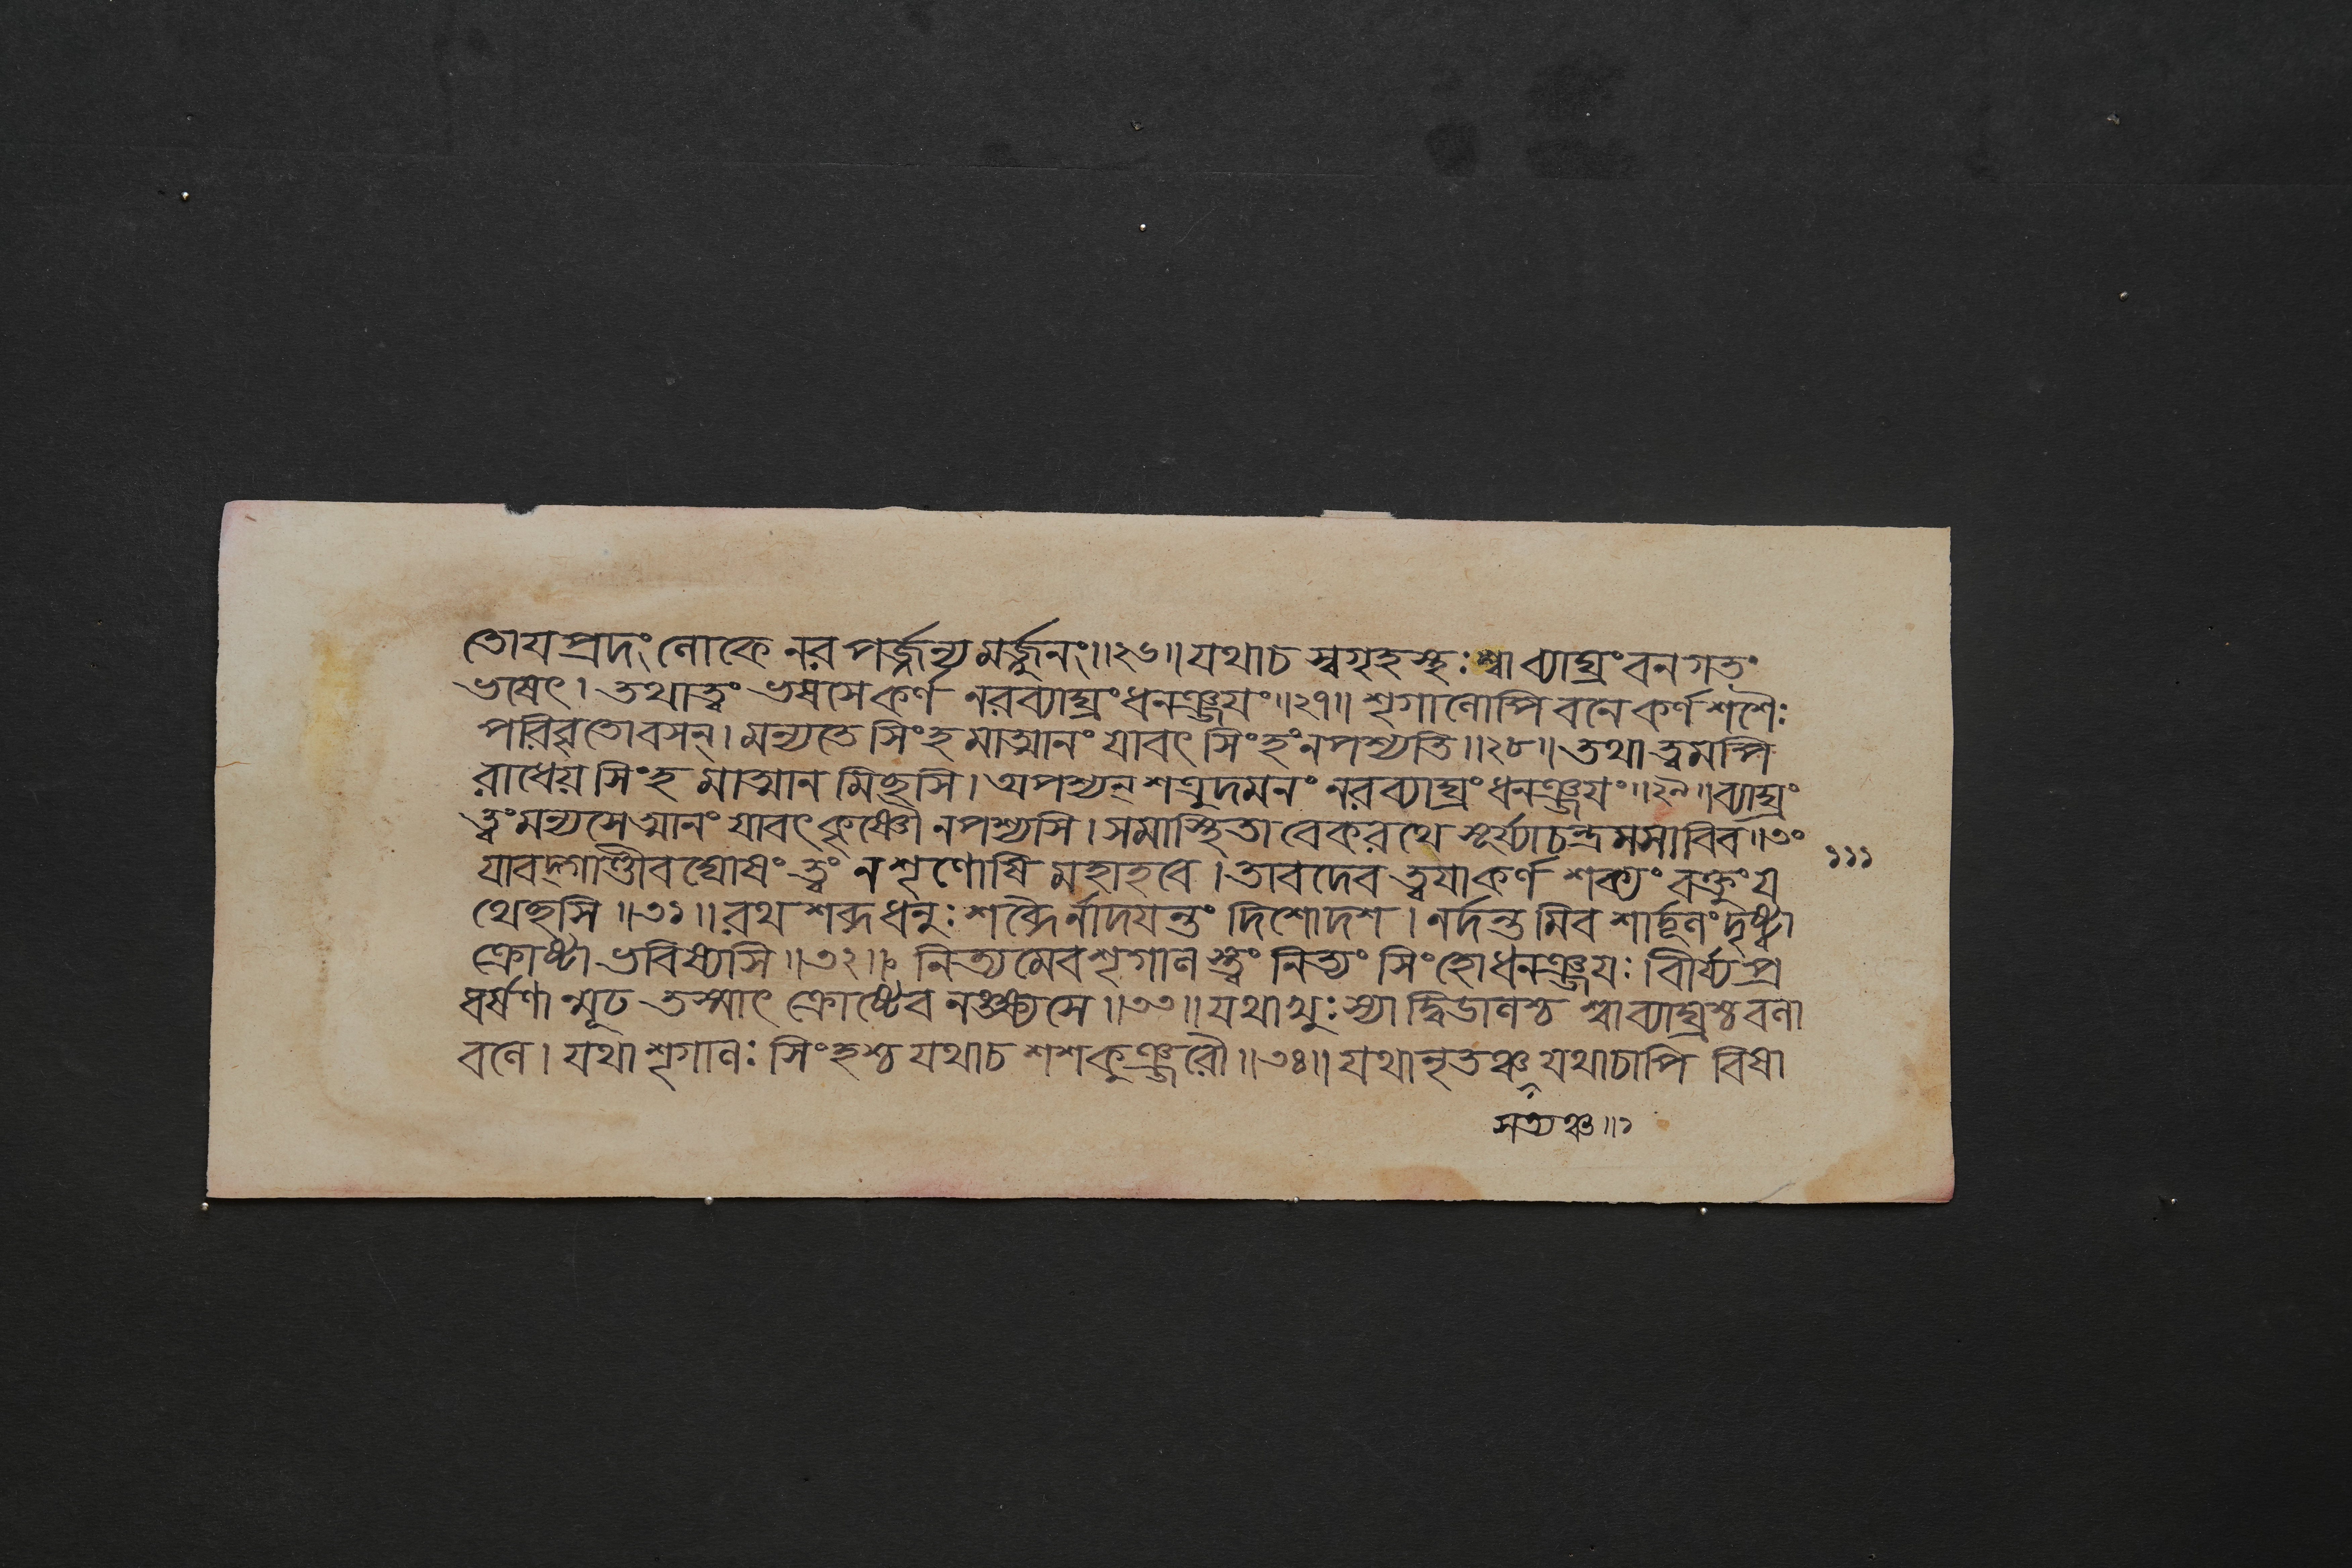 তোয়প্রদং লোকে নর পর্জ্জন্যমর্জ্জুনং॥২৬॥ যথাচ স্বগৃহস্থঃ শ্বা ব্যাঘ্রং বনগতং
ভষেৎ। তথাত্বং ভষসে কর্ণ নরব্যাঘ্রং ধনঞ্জয়ং॥২৭॥ শৃগালোপি বনে কর্ণ শশৈঃ
পরিবৃতো বসন্। মন্যতে সিংহমাত্মানং যাবৎ সিংহং ন পশ্যতি॥২৮॥ তথা ত্বমপি
রাধেয় সিংহমাত্মানমিচ্ছসি। অপশ্যন্ শত্রুদমনং নরব্যাঘ্রং ধনঞ্জয়ং॥২৯॥ ব্যাঘ্রং
ত্বং মন্যসেত্মানং যাবৎ কৃষ্ণৌ ন পশ্যসি। সমাস্থিতা বেকরথে সূর্য্যাচন্দ্রমসাবিব॥৩০
১১১
যাবদ্গাণ্ডীবঘোষং ত্বং ন শৃণোষি মহাহবে। তাবদেব ত্বয়া কর্ণ শক্যং বক্তুং য
থেচ্ছসি॥৩১॥ রথশব্দধনুঃশব্দৈর্নাদয়ন্তং দিশোদশ। নর্দন্তমিব শার্দ্দূলং দৃষ্ট্বা
ক্রোষ্টা ভবিষ্যসি॥৩২॥ নিত্যমেব শৃগালস্ত্বং নিত্যং সিংহো ধনঞ্জয়ঃ। বীর্য্যপ্র
ধর্ষণান্মূঢ তস্মাৎ ক্রোষ্টেব লক্ষ্যসে॥৩৩॥ যথাখুঃ স্যাদ্বিডালশ্চ শ্বা ব্যাঘ্রশ্চ বলা
বলে। যথা শৃগালঃ সিংহশ্চ যথাচ শশকুঞ্জরৌ॥৩৪॥ যথানৃতঞ্চ যথাচাপি বিষা
সত্যঞ্চ॥১